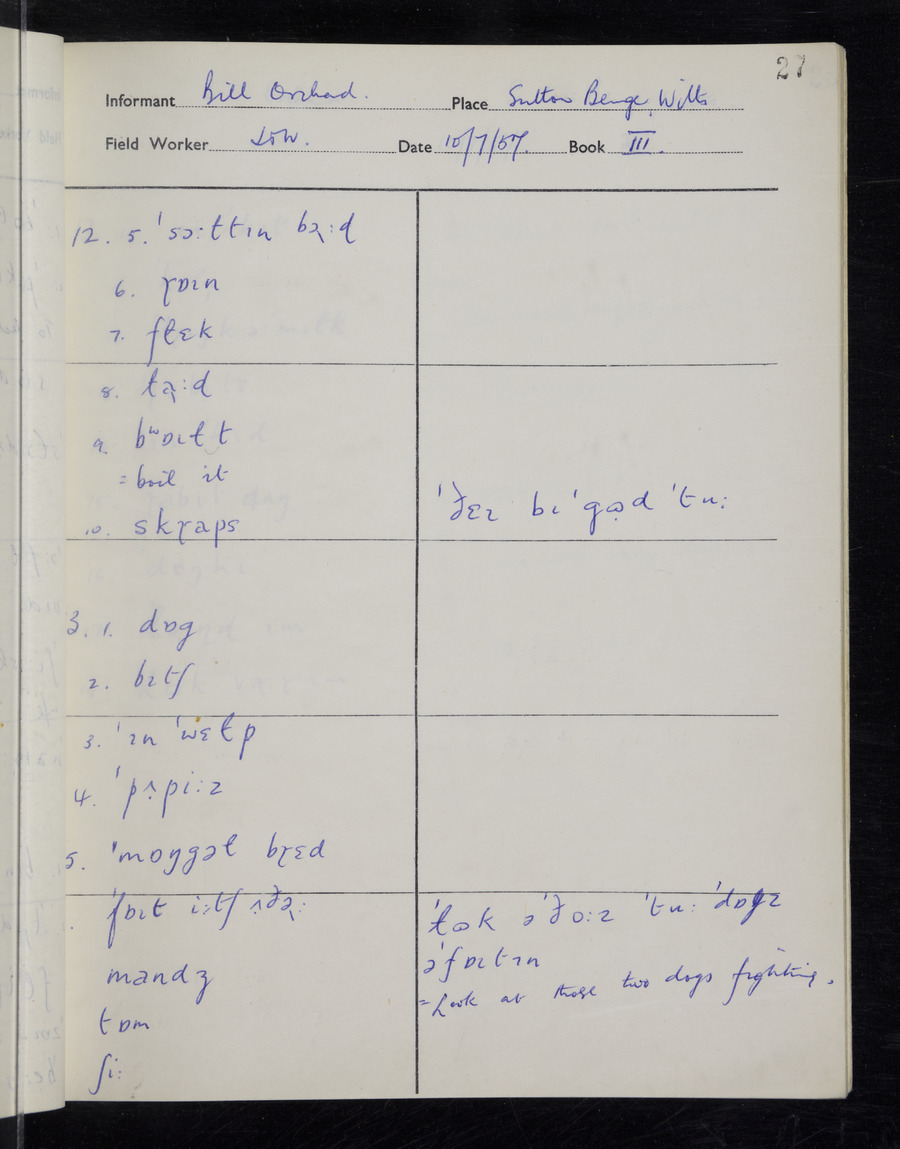 27
Informant Bill Orchard. Place Sutton Benger, Wilts
Field Worker Date 10/7/57. Book III.
12. 5. ˈsɔːɫtɪn bəɻːd
6. ɻɒɪn
7. fɫɛk
8. ɫaɻːd
9. bʷɒɪɫ t
= boil it
10. skɻaps
ˈðɛz bɪ ˈgʊd ˈtuː
3. 1. dɒg
2. bɪtʃ
3. ˈɪn ˈwɛɫp
4. ˈpʌ̣piːz
5. ˈmɒŋgəɫ bɻɛd
ˈfɒɪt iːtʃ ʌ̣ðəɻː
mandʒ
tɒm
ʃiː
ˈɫʊk əˈðoːz ˈtuː ˈdɒgz
əˈfɒɪtɪn
= Look at those two dogs fighting.